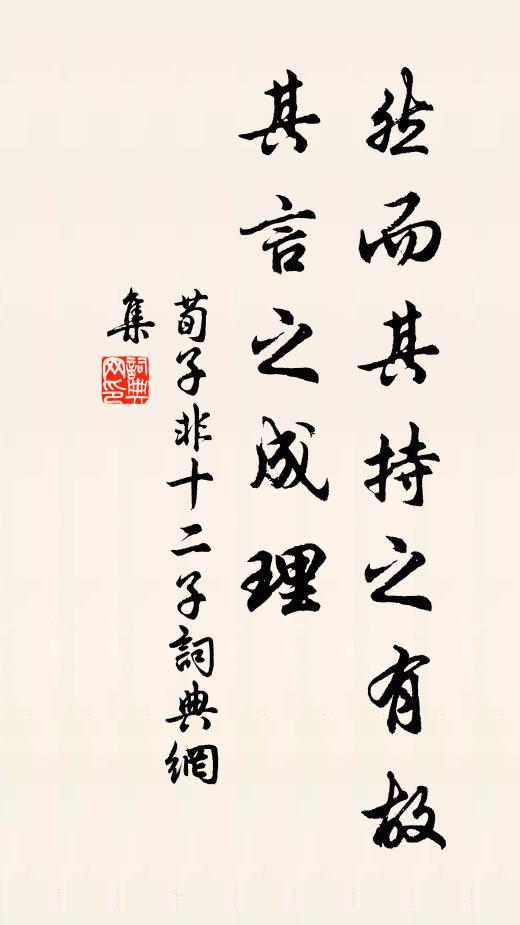 然而其持之有故
其言之成理
荀子非十二子詞典網
集
詞典網印